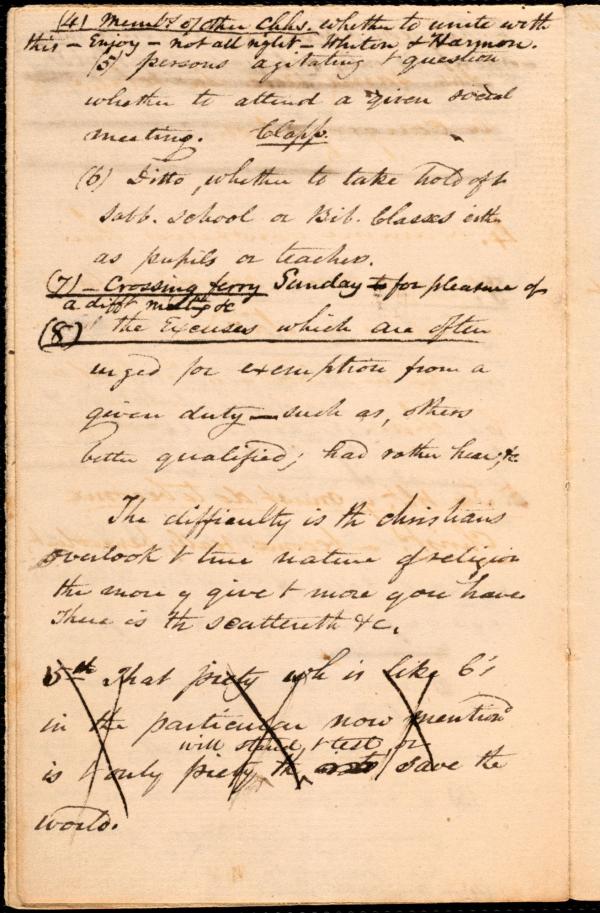 (4) Membrs of other Chhs. whether to unite with
this - Enjoy - not all right - Whiton & Harmon.
(5) persons agitating t question
whether to attend a given social
meeting. Clapp.
(6) Ditto, whether to take hold of t
Sabb. School or Bib. Classes eith
as pupils or teachers.
(7) - Crossing ferry Sunday to for pleasure of
a difft &c
(8) the Excuses which are often
urged for exemption from a
given duty - such as, others
better qualified; had rather hear, &c
The difficulty is th christians
overlook t true nature of religion
the more y give t more you have.
There is th scattereth &c.
5th That piety wh is like C's
in the particular now mentiond
will stand t test, or
is t only piety th save the
world.